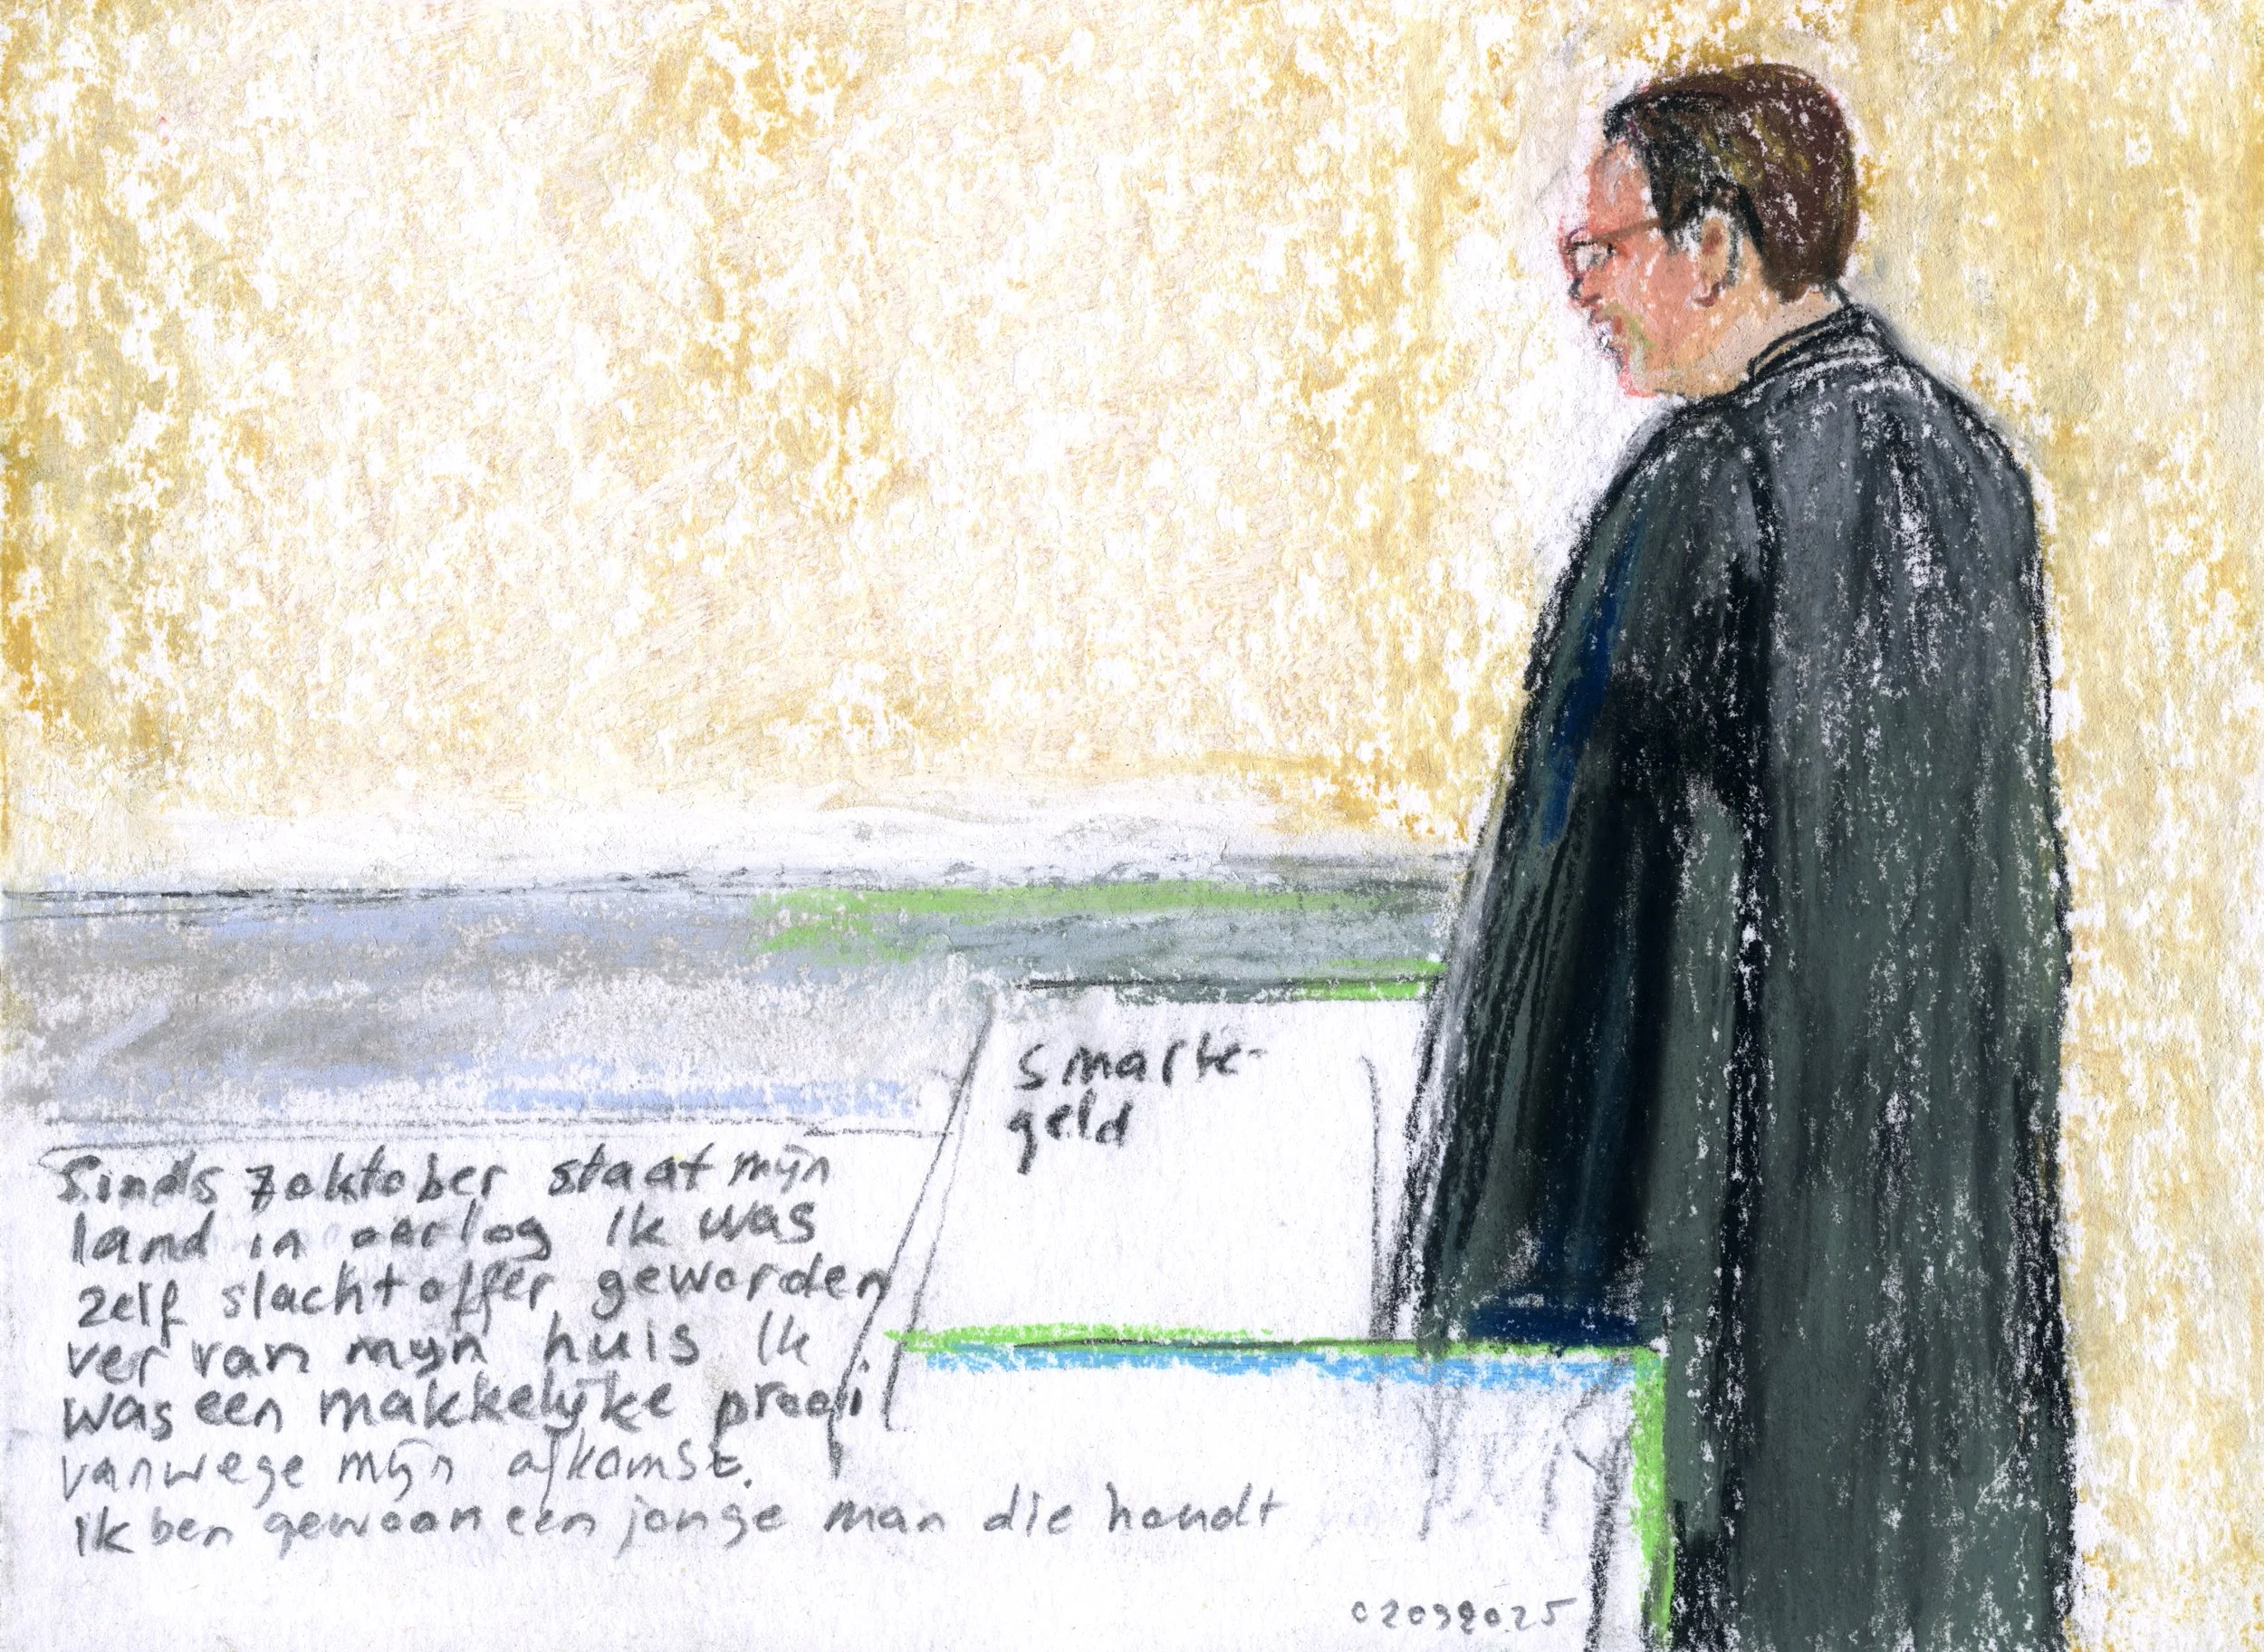 smarte-
geld
Sinds 7 oktober staat mijn
land in oorlog Ik was
zelf slachtoffer geworden
ver van mijn huis Ik
was een makkelijke prooi
vanwege mijn afkomst.
ik ben gewoon een jonge man die houdt
02092025